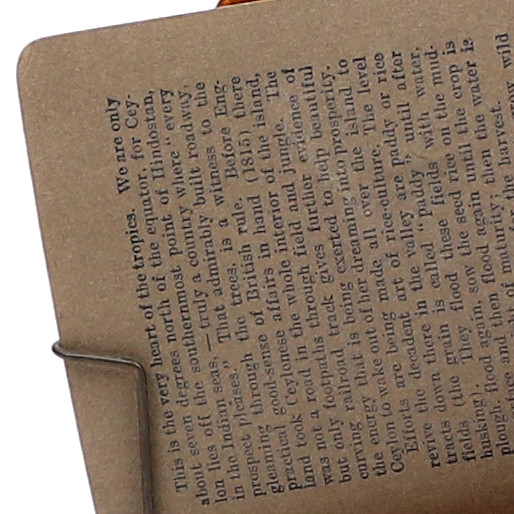 This is the very heart of the tropics. We are only
about seven degrees north of the equator, for Cey-
lon lies off the southernmost point of Hindostan,
in the Indian seas,—truly a country where "every
prospect pleases. That admirably built roadway,
gleaming through the trees, is a witness to the
practical good-sense of British rule. Before Eng-
land took Ceylonese affairs in hand (1815) there
was not a road in the whole interior of the island,
but only footpaths through field and jungle. The
curving railroad track gives further evidence of
the energy that is being exerted to help beautiful
Ceylon to wake out of her dreaming into prosperity.
Efforts are being made all over the island to
revive the decadent art of rice-culture. The level
tracts down there in the valley are paddy or rice
fields (the grain is called "paddy" until after
husking). They flood these fields with water,
plough, flood again, sow the seed rice on the mud-
face and then flood again until the crop is
of maturity, then the water is
for the harvest. wild